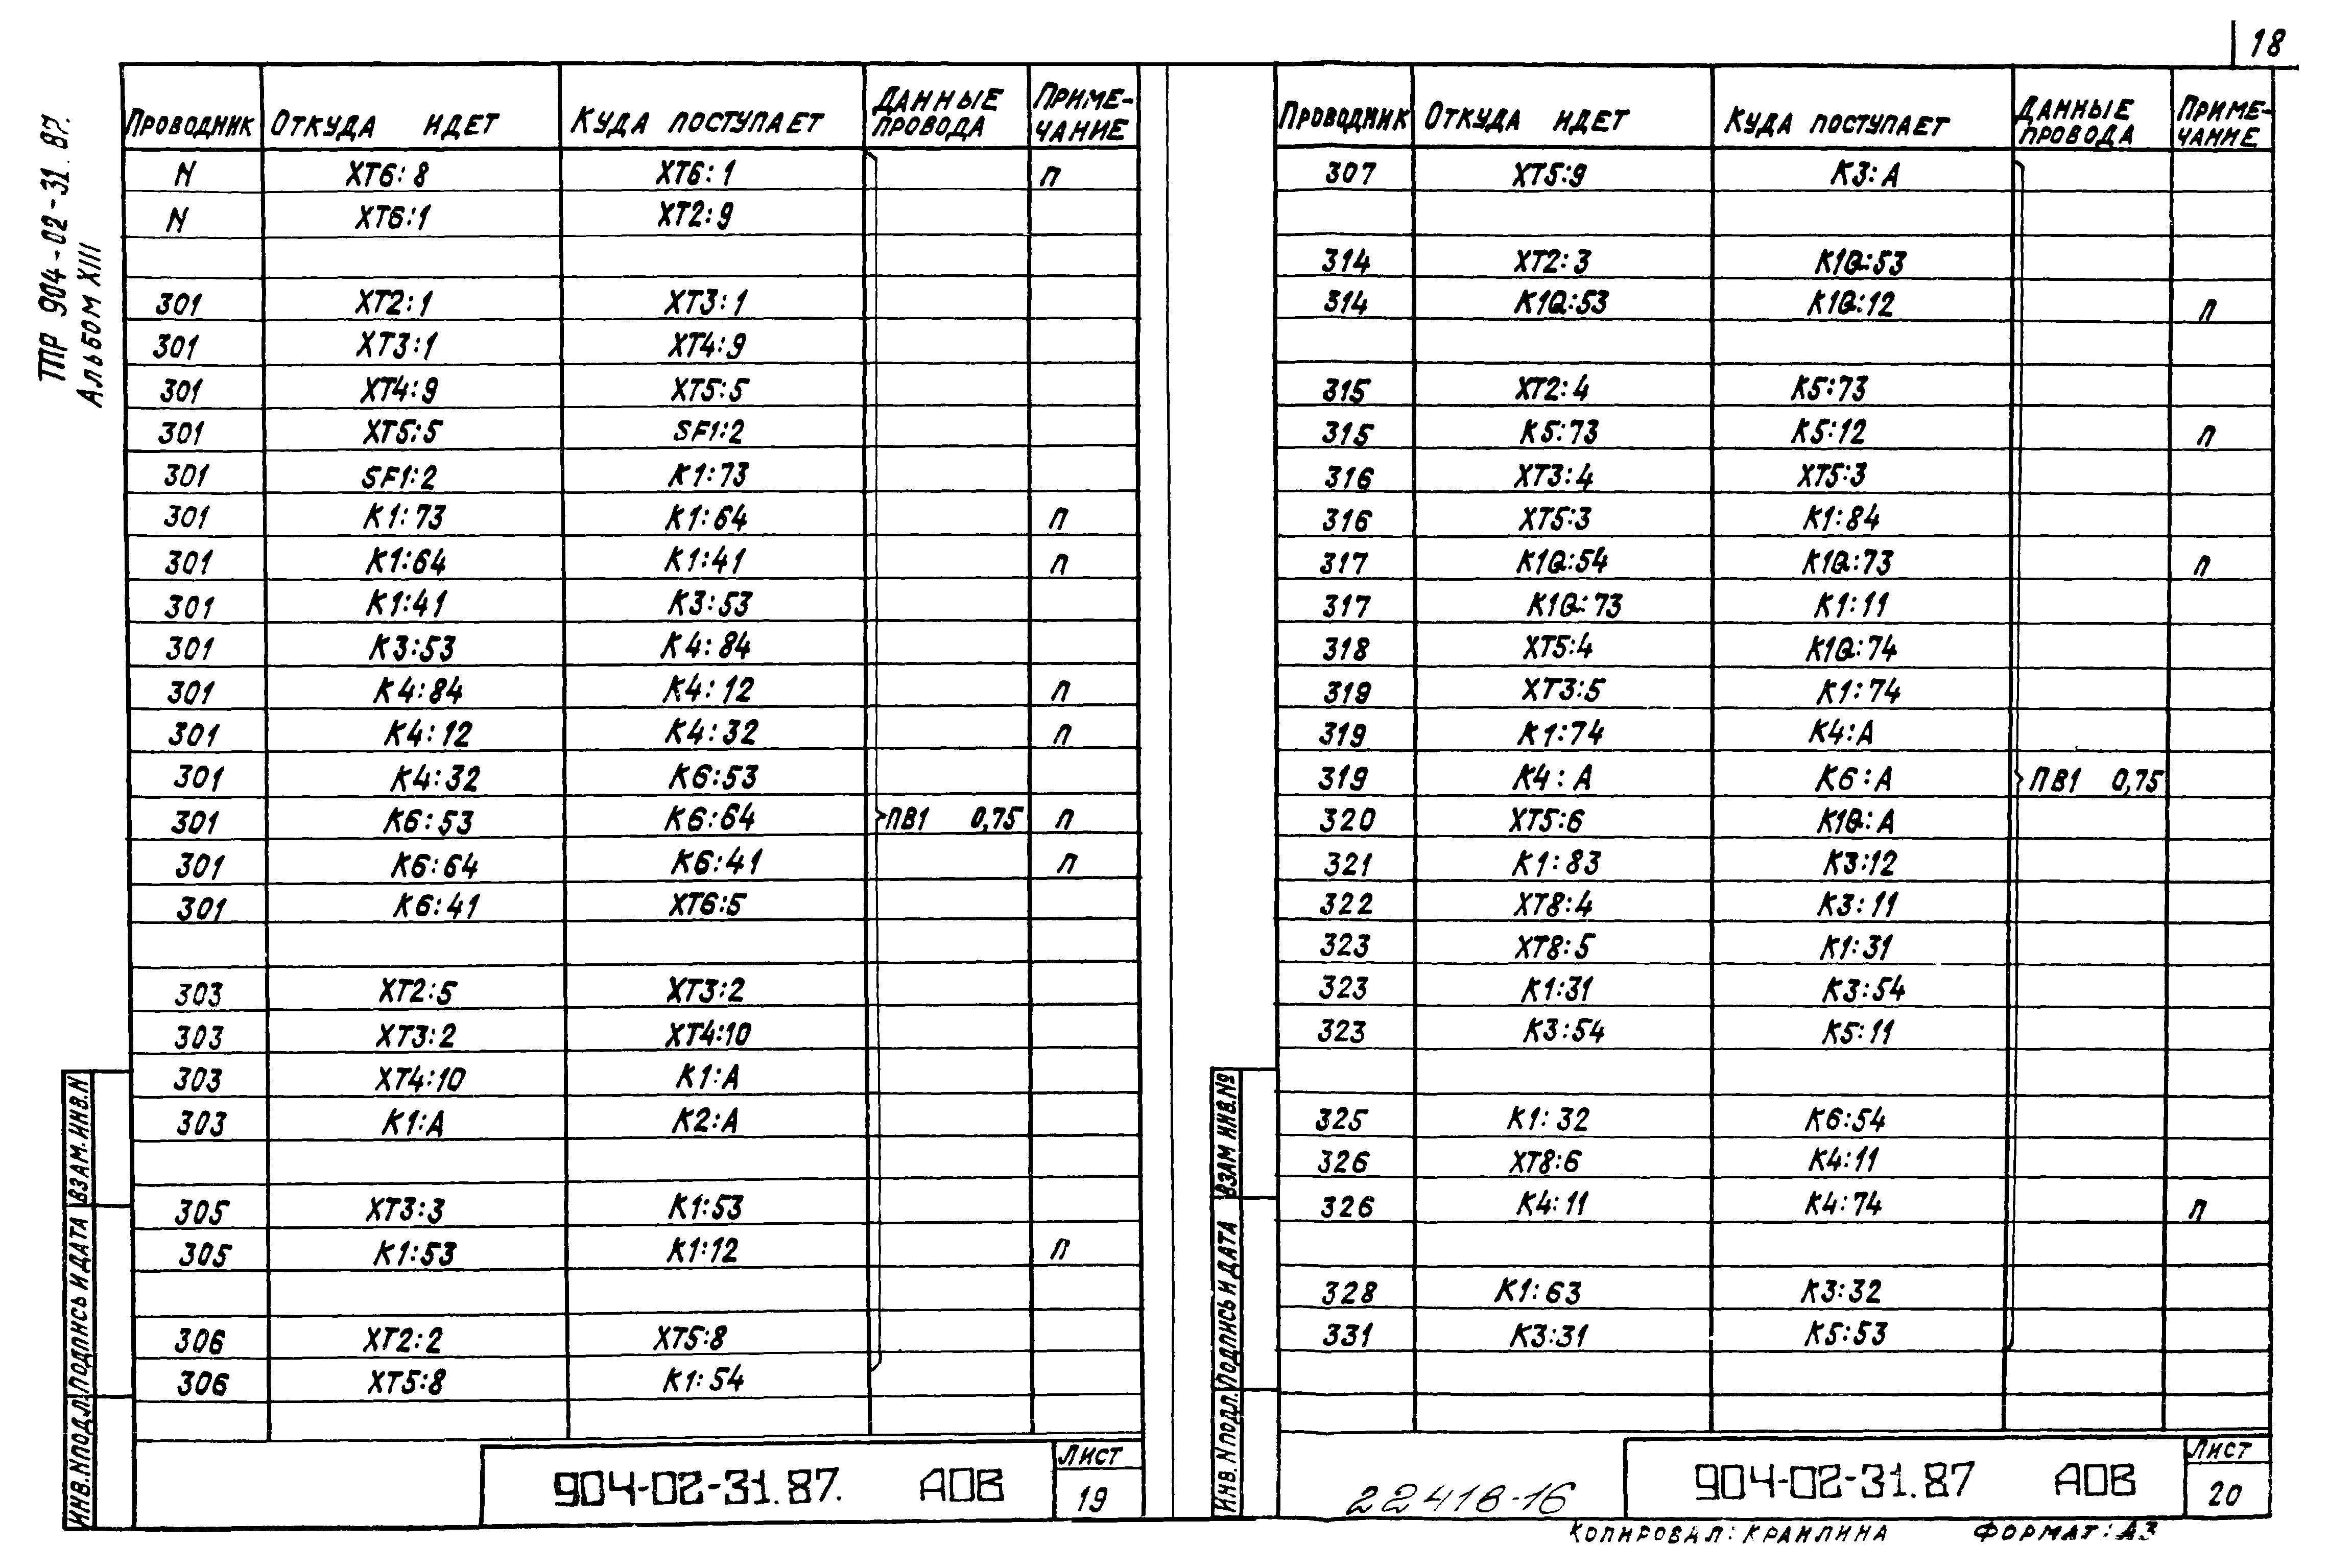 18
ТПР 904-02-31.87.
Альбом XIII
Проводник Откуда идет Куда поступает Данные провода Примечание
N ХТ6:8 ХТ6:1 П
N ХТ6:1 ХТ2:9
301 ХТ2:1 ХТ3:1
301 ХТ3:1 ХТ4:9
301 ХТ4:9 ХТ5:5
301 ХТ5:5 SF1:2
301 SF1:2 К1:73
301 К1:73 К1:64 П
301 К1:64 К1:41 П
301 К1:41 К3:53
301 К3:53 К4:84
301 К4:84 К4:12 П
301 К4:12 К4:32 П
301 К4:32 К6:53
301 К6:53 К6:64 ПВ1 0,75 П
301 К6:64 К6:41 П
301 К6:41 ХТ6:5
303 ХТ2:5 ХТ3:2
303 ХТ3:2 ХТ4:10
303 ХТ4:10 К1:А
303 К1:А К2:А
305 ХТ3:3 К1:53
305 К1:53 К1:12 П
306 ХТ2:2 ХТ5:8
306 ХТ5:8 К1:54
Инв.N подл. Подпись и дата Взам.инв.N
904-02-31.87. АОВ
Лист
19
Проводник Откуда идет Куда поступает Данные провода Примечание
307 ХТ5:9 К3:А
314 ХТ2:3 К1Q:53
314 К1Q:53 К1Q:12 П
315 ХТ2:4 К5:73
315 К5:73 К5:12 П
316 ХТ3:4 ХТ5:3
316 ХТ5:3 К1:84
317 К1Q:54 К1Q:73 П
317 К1Q:73 К1:11
318 ХТ5:4 К1Q:74
319 ХТ3:5 К1:74
319 К1:74 К4:А
319 К4:А К6:А ПВ1 0,75
320 ХТ5:6 К1Q:А
321 К1:83 К3:12
322 ХТ8:4 К3:11
323 ХТ8:5 К1:31
323 К1:31 К3:54
323 К3:54 К5:11
325 К1:32 К6:54
326 ХТ8:6 К4:11
326 К4:11 К4:74 П
328 К1:63 К3:32
331 К3:31 К5:53
Инв.N подл. Подпись и дата Взам инв.№
22418-16
904-02-31.87 АОВ
Лист
20
Копировал: Кранлина Формат: А3